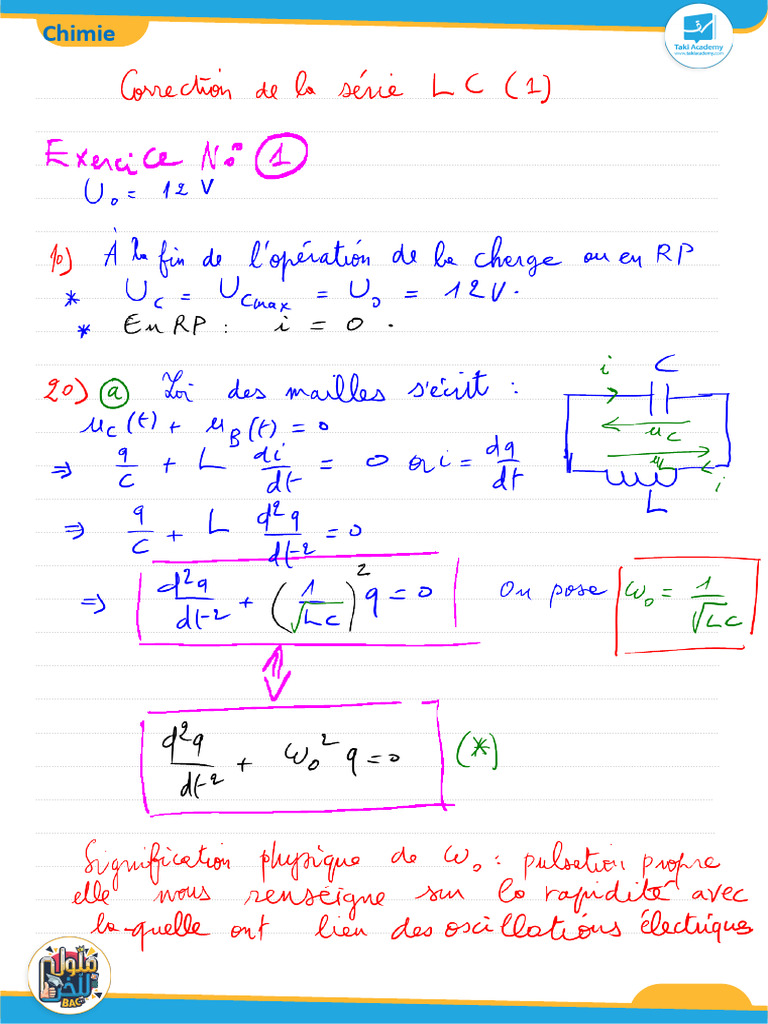 Chimie
Takı Academy
www.takiacademy.com
Correction de la série LC (1)
Exercice N° 1
U₀ = 12 V
1°) À la fin de l'opération de la charge ou en RP
* U_C = U_Cmax = U₀ = 12V.
* En RP : i = 0.
2°) a Loi des mailles s'écrit :
u_C(t) + u_B(t) = 0
⇒ q/C + L di/dt = 0 or i = dq/dt
⇒ q/C + L d²q/dt² = 0
⇒ d²q/dt² + (1/√LC)² q = 0 On pose ω₀ = 1/√LC
i C
u_C
u_L
i
L
d²q/dt² + ω₀² q = 0 (*)
Signification physique de ω₀ : pulsation propre
elle nous renseigne sur la rapidité avec
la-quelle ont lieu des oscillations électriques
ملول
للخر
BAC